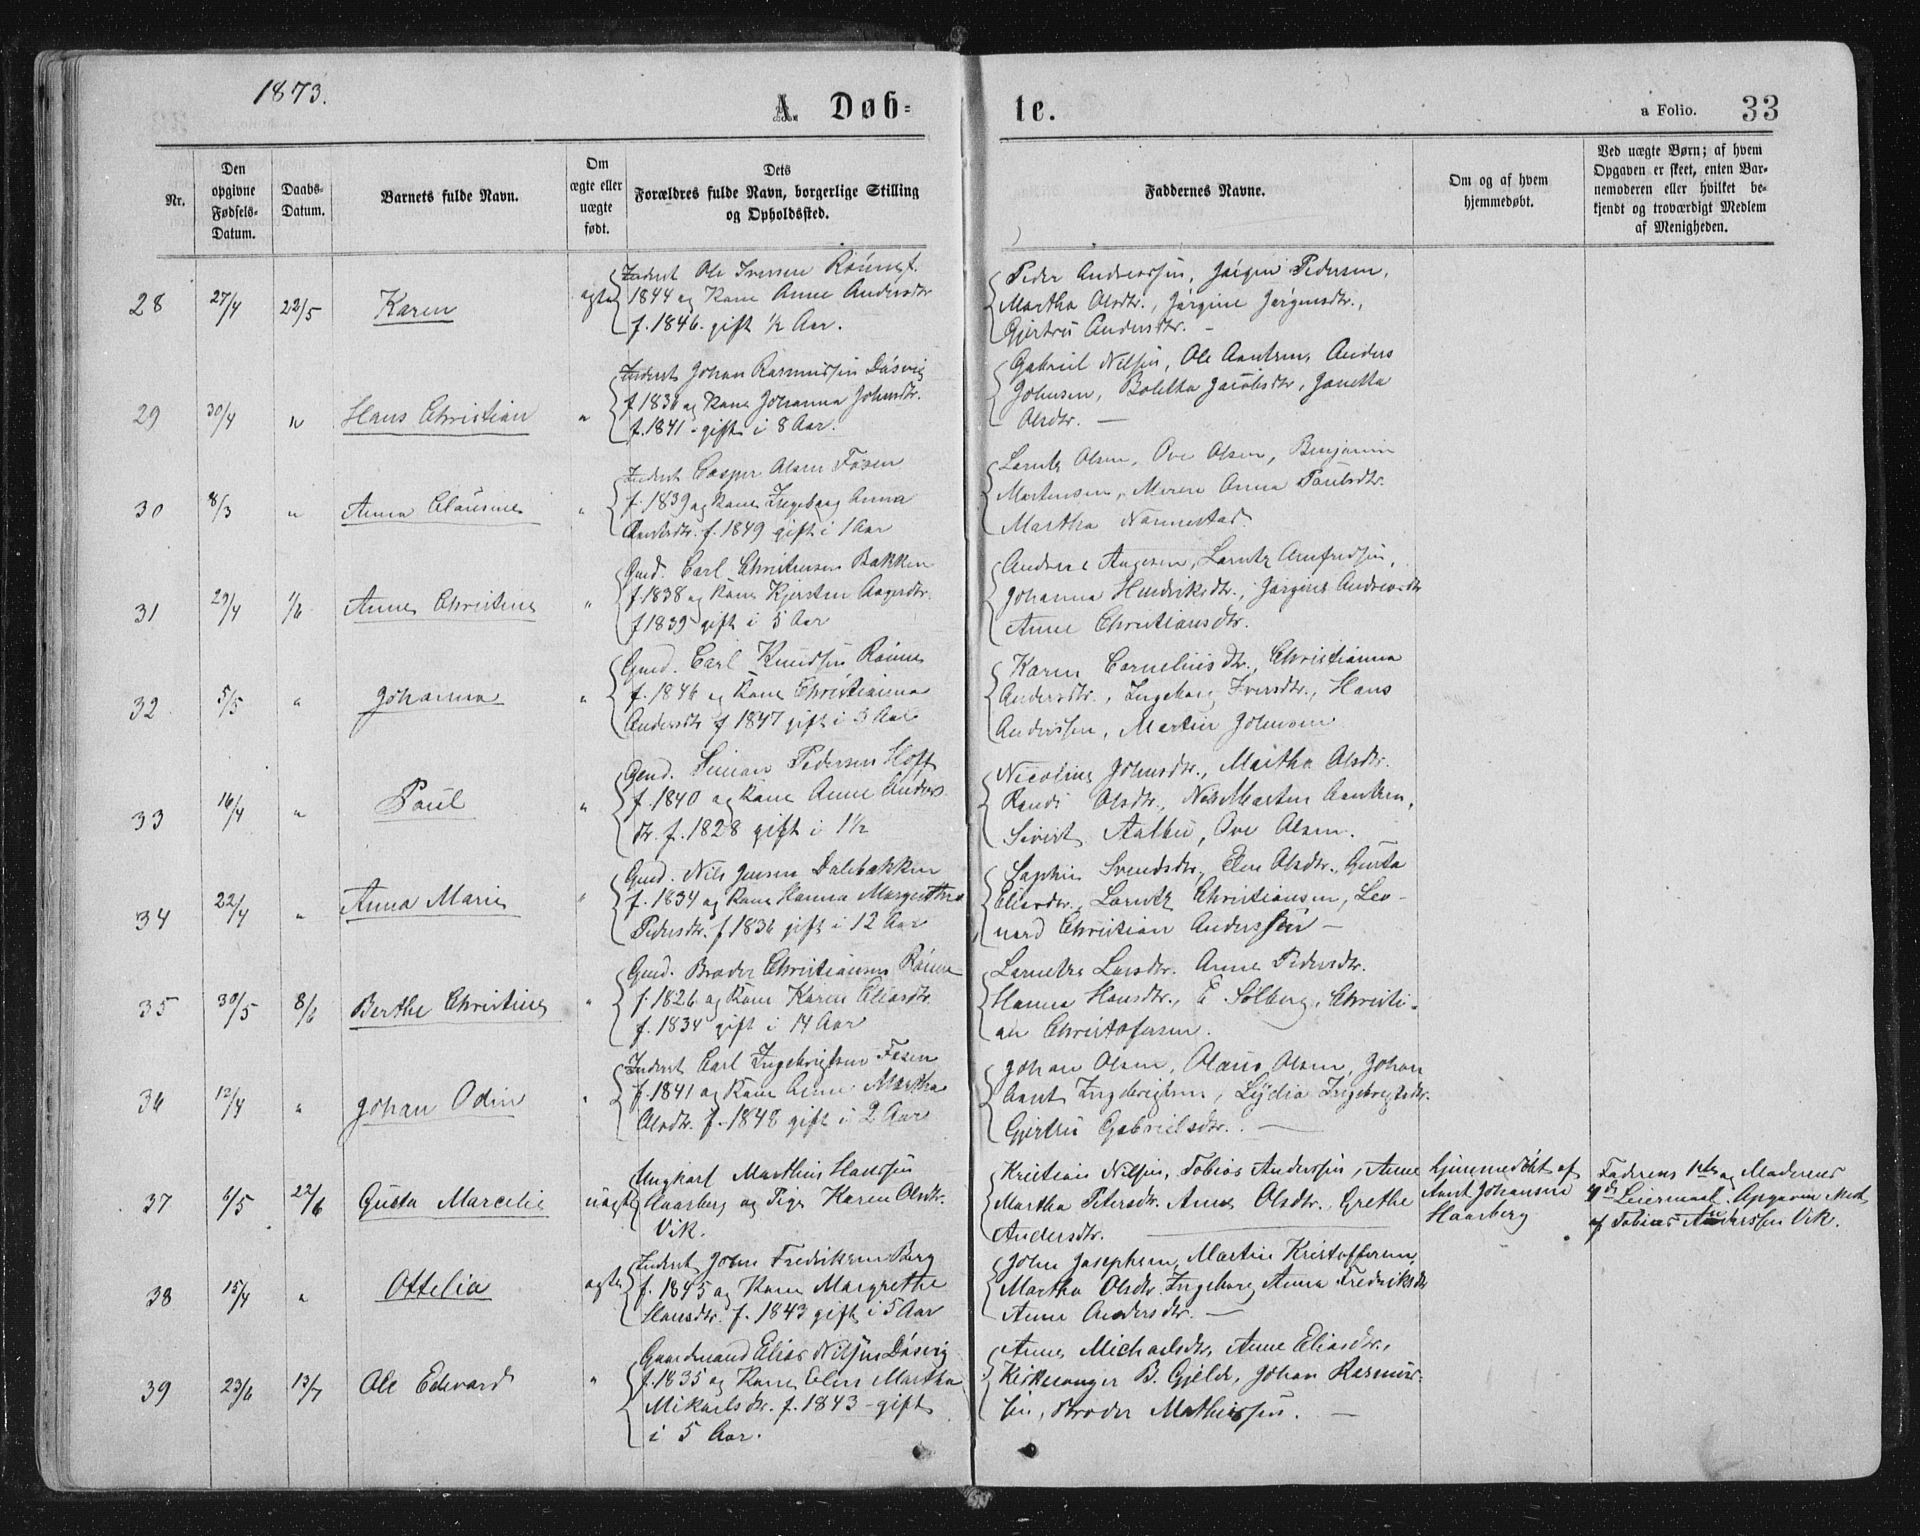 1873.
A Døb-
te.
a Folio. 33
Nr.
Den opgivne Fødsels-Datum.
Daabs-Datum.
Barnets fulde Navn.
Om ægte eller uægte født.
Dets
Forældres fulde Navn, borgerlige Stilling
og Opholdssted.
Faddernes Navne.
Om og af hvem
hjemmedøbt.
Ved uægte Børn; af hvem
Opgaven er skeet, enten Bar-
nemoderen eller hvilket be-
kjendt og troværdigt Medlem
af Menigheden.
28 27/4 22/5 Karen ægte
Inderst Ole Iversen
1844 og Kone Anne Andersdtr
f. 1846 gift ½ Aar.
Peder Andreassen, Jørgen Pedersen,
Martha Olsdtr., Jørgine Jørgensdtr.,
Gjertru Andersdtr. -
29 30/4 " Hans Christian "
Inderst Johan Rasmussen Døsvig
f 1836 og Kone Johanna Johnsdtr.
f. 1841 - gift i 8 Aar.
Gabriel Nilsen, Ole Aantsen, Anders
Johnsen, Boletha Jacobsdtr, Janetta
Olsdtr. -
30 8/3 " Anna Clausine "
Inderst Casper Olsen Fosen
f. 1839 og Kone Ingeborg Anna
f. 1849 gift i 1 Aar
Lorntz Olsen, Ove Olsen, Benjamin
Martensen, Meren Anna Paulsdtr.
Martha Nannestad
31 29/4 1/6 Anne Christine "
Gmd. Carl Christensen Bakken
f. 1838 og Kone Kjersten Aagesdtr.
f 1839 gift i 5 Aar
Andreas Aagesen, Lorntz Arnfredsen,
Johanna Hendriksdtr., Jørgine Andreasdtr
Anne Christiansdtr.
32 5/5 " Johanna "
Gmd. Carl Knudsen Rønne
f. 1846 og Kone Christianna
Andersdtr f 1847 gift i 3 Aar
Karen Corneliusdtr., Christianna
Andersdtr., Ingeborg Iversdtr., Hans
Anderssen, Martin Johnsen
33 16/4 " Paul "
Gmd. Simon Pedersen Hoff
f. 1840 og Kone Anne Anders
dtr. f. 1828 gift i 1½
Nicoline Johnsdtr., Martha Olsdtr.
Randi Olsdtr., Nils Martin Aantsen,
Sivert Aalbu, Ove Olsen.
34 22/4 " Anna Marie "
Gmd. Nils Jensen Dalebakken
f. 1834 og Kone Hanna Margrethe
Pedersdtr. f 1836 gift i 12 Aar
Sophie Svendsdtr, Elen Olsdtr., Gusta
Eliasdtr., Lorntz Christiansen, Leo-
nard Christian Anderssen -
35 30/5 8/6 Berthe Christine "
Gmd. Broder Christiansen Rønne
f. 1826 og Kone Karen Eliasdtr.
f. 1834 gift i 14 Aar
Larsdtr. Anne Pedersdtr.
Hanna Hansdtr., E Solberg, Christi-
an Christofersen.
36 12/4 " Johan Odin "
Inderst Carl Ingebrigtsen Fosen
f. 1841 og Kone Anne Martha
Olsdtr. f. 1848 gift i 2 Aar
Johan Olsen, Olaus Olsen, Johan
Aant Ingebrigtsen, Lydia Ingebrigtsdtr.
Gjertru Gabrielsdtr. -
37 6/5 22/6 Gusta Marcelie uægte
Ungkarl Mathius Hanssen
Haarberg og Pige Karen Olsdtr.
Vik.
Kristian Nilsen, Tobias Anderssen, Anne
Martha Petersdtr. Anne Olsdtr. Grethe
Andersdtr. -
hjemmedøbt af
Aant Johansen
Haarberg
Faderens 1ste og Moderens
Leiermaal. Opgaven med
af Tobias Anderssen Vik.
38 15/4 " Ottelia ægte
Inderst John Fredriksen Berg
f. 1845 og Kone Margrethe
Hansdtr. f. 1843 gift i 5 Aar
John Josephsen, Martin Kristoffersen,
Martha Olsdtr. Ingeborg Anna Fredriksdtr
Anne Andersdtr. -
39 23/6 13/7 Ole Edvard "
Gaardmand Elias Nilsen Døsvig
f. 1835 og Kone Elen Martha
Mikaelsdtr. f. 1843 - gift
i 5 Aar.
Anne Michaelsdtr, Anne Eliasdtr.,
Kirkesanger B. Gjelde, Johan Rasmus-
sen, Broder Mathiessen. -